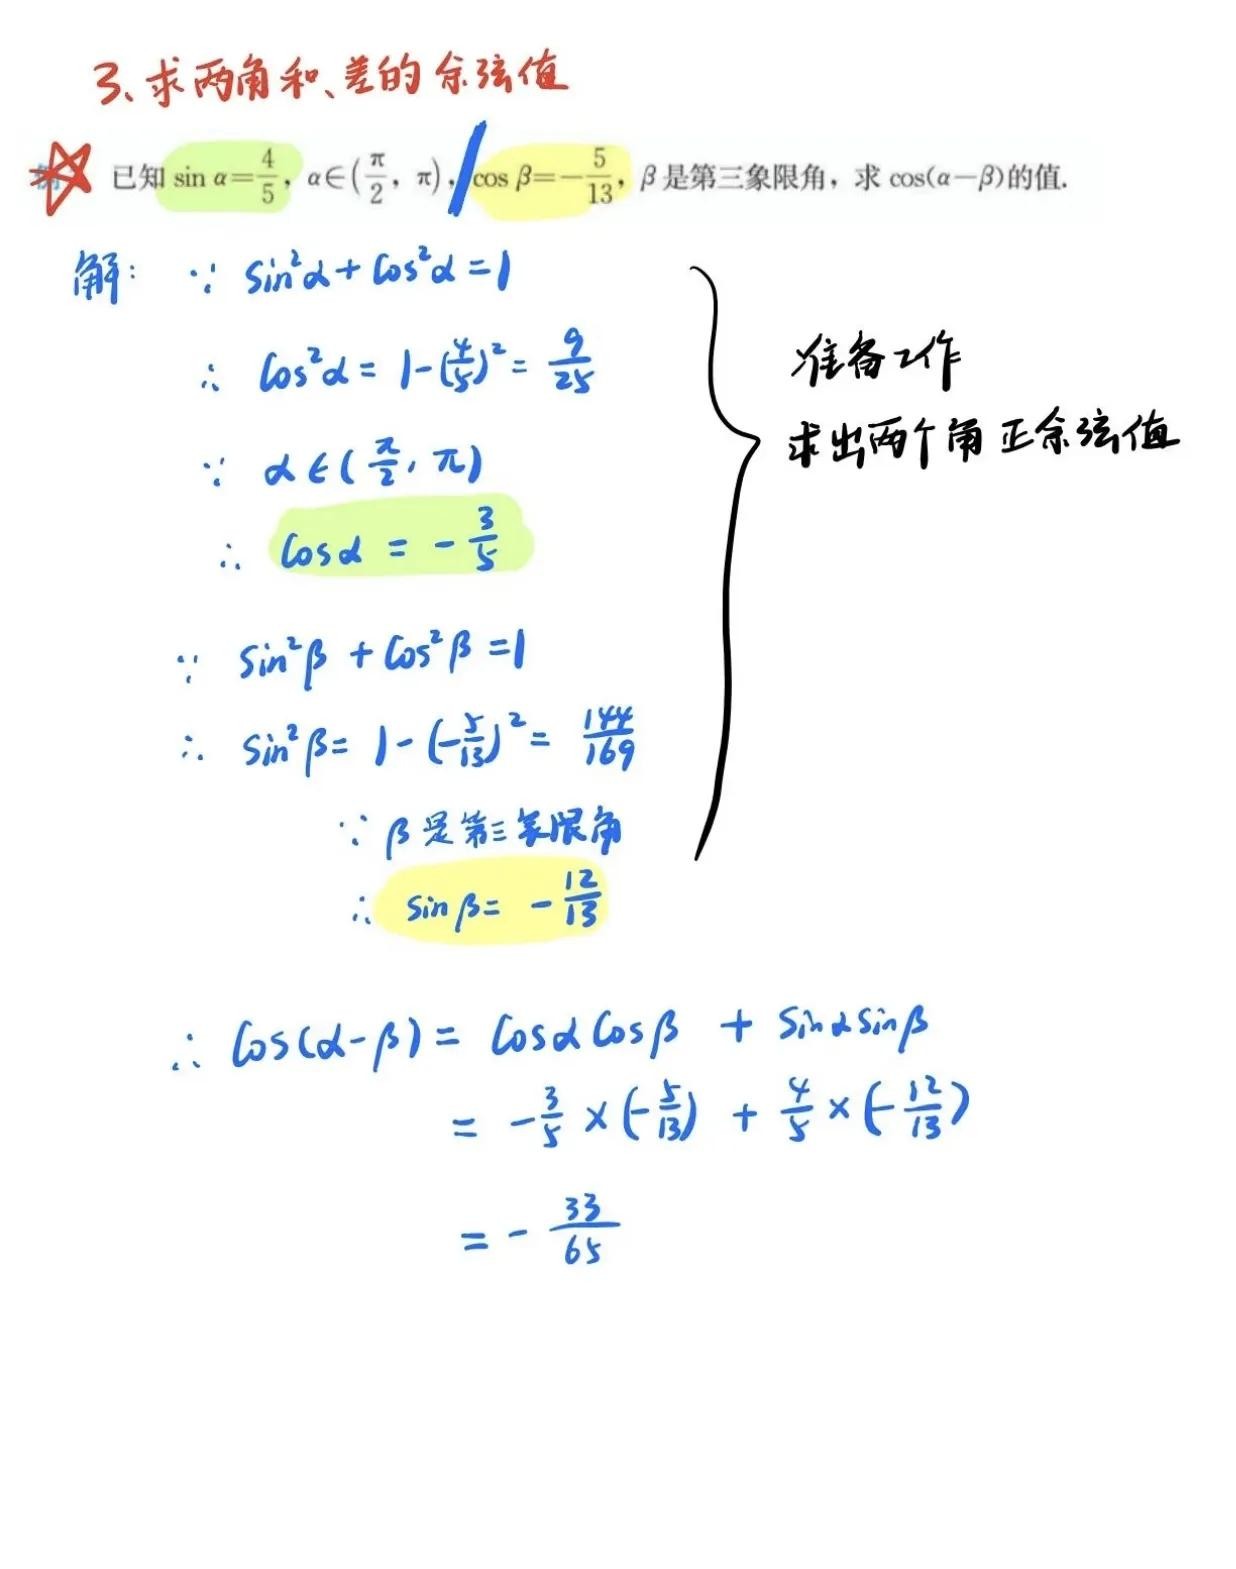 3、求两角和、差的余弦值
已知 sin α=4/5，α∈(π/2，π)，cos β=-5/13，β 是第三象限角，求 cos(α-β)的值.
解： ∵ sin²α+cos²α=1
∴ cos²α = 1-(4/5)² = 9/25
∵ α∈(π/2, π)
∴ cosα = -3/5
准备工作
求出两个角正余弦值
∵ sin²β+cos²β=1
∴ sin²β= 1-(-5/13)² = 144/169
∵ β是第三象限角
∴ sinβ= -12/13
∴ cos(α-β)= cosαcosβ + sinαsinβ
= -3/5×(-5/13) + 4/5×(-12/13)
= -33/65